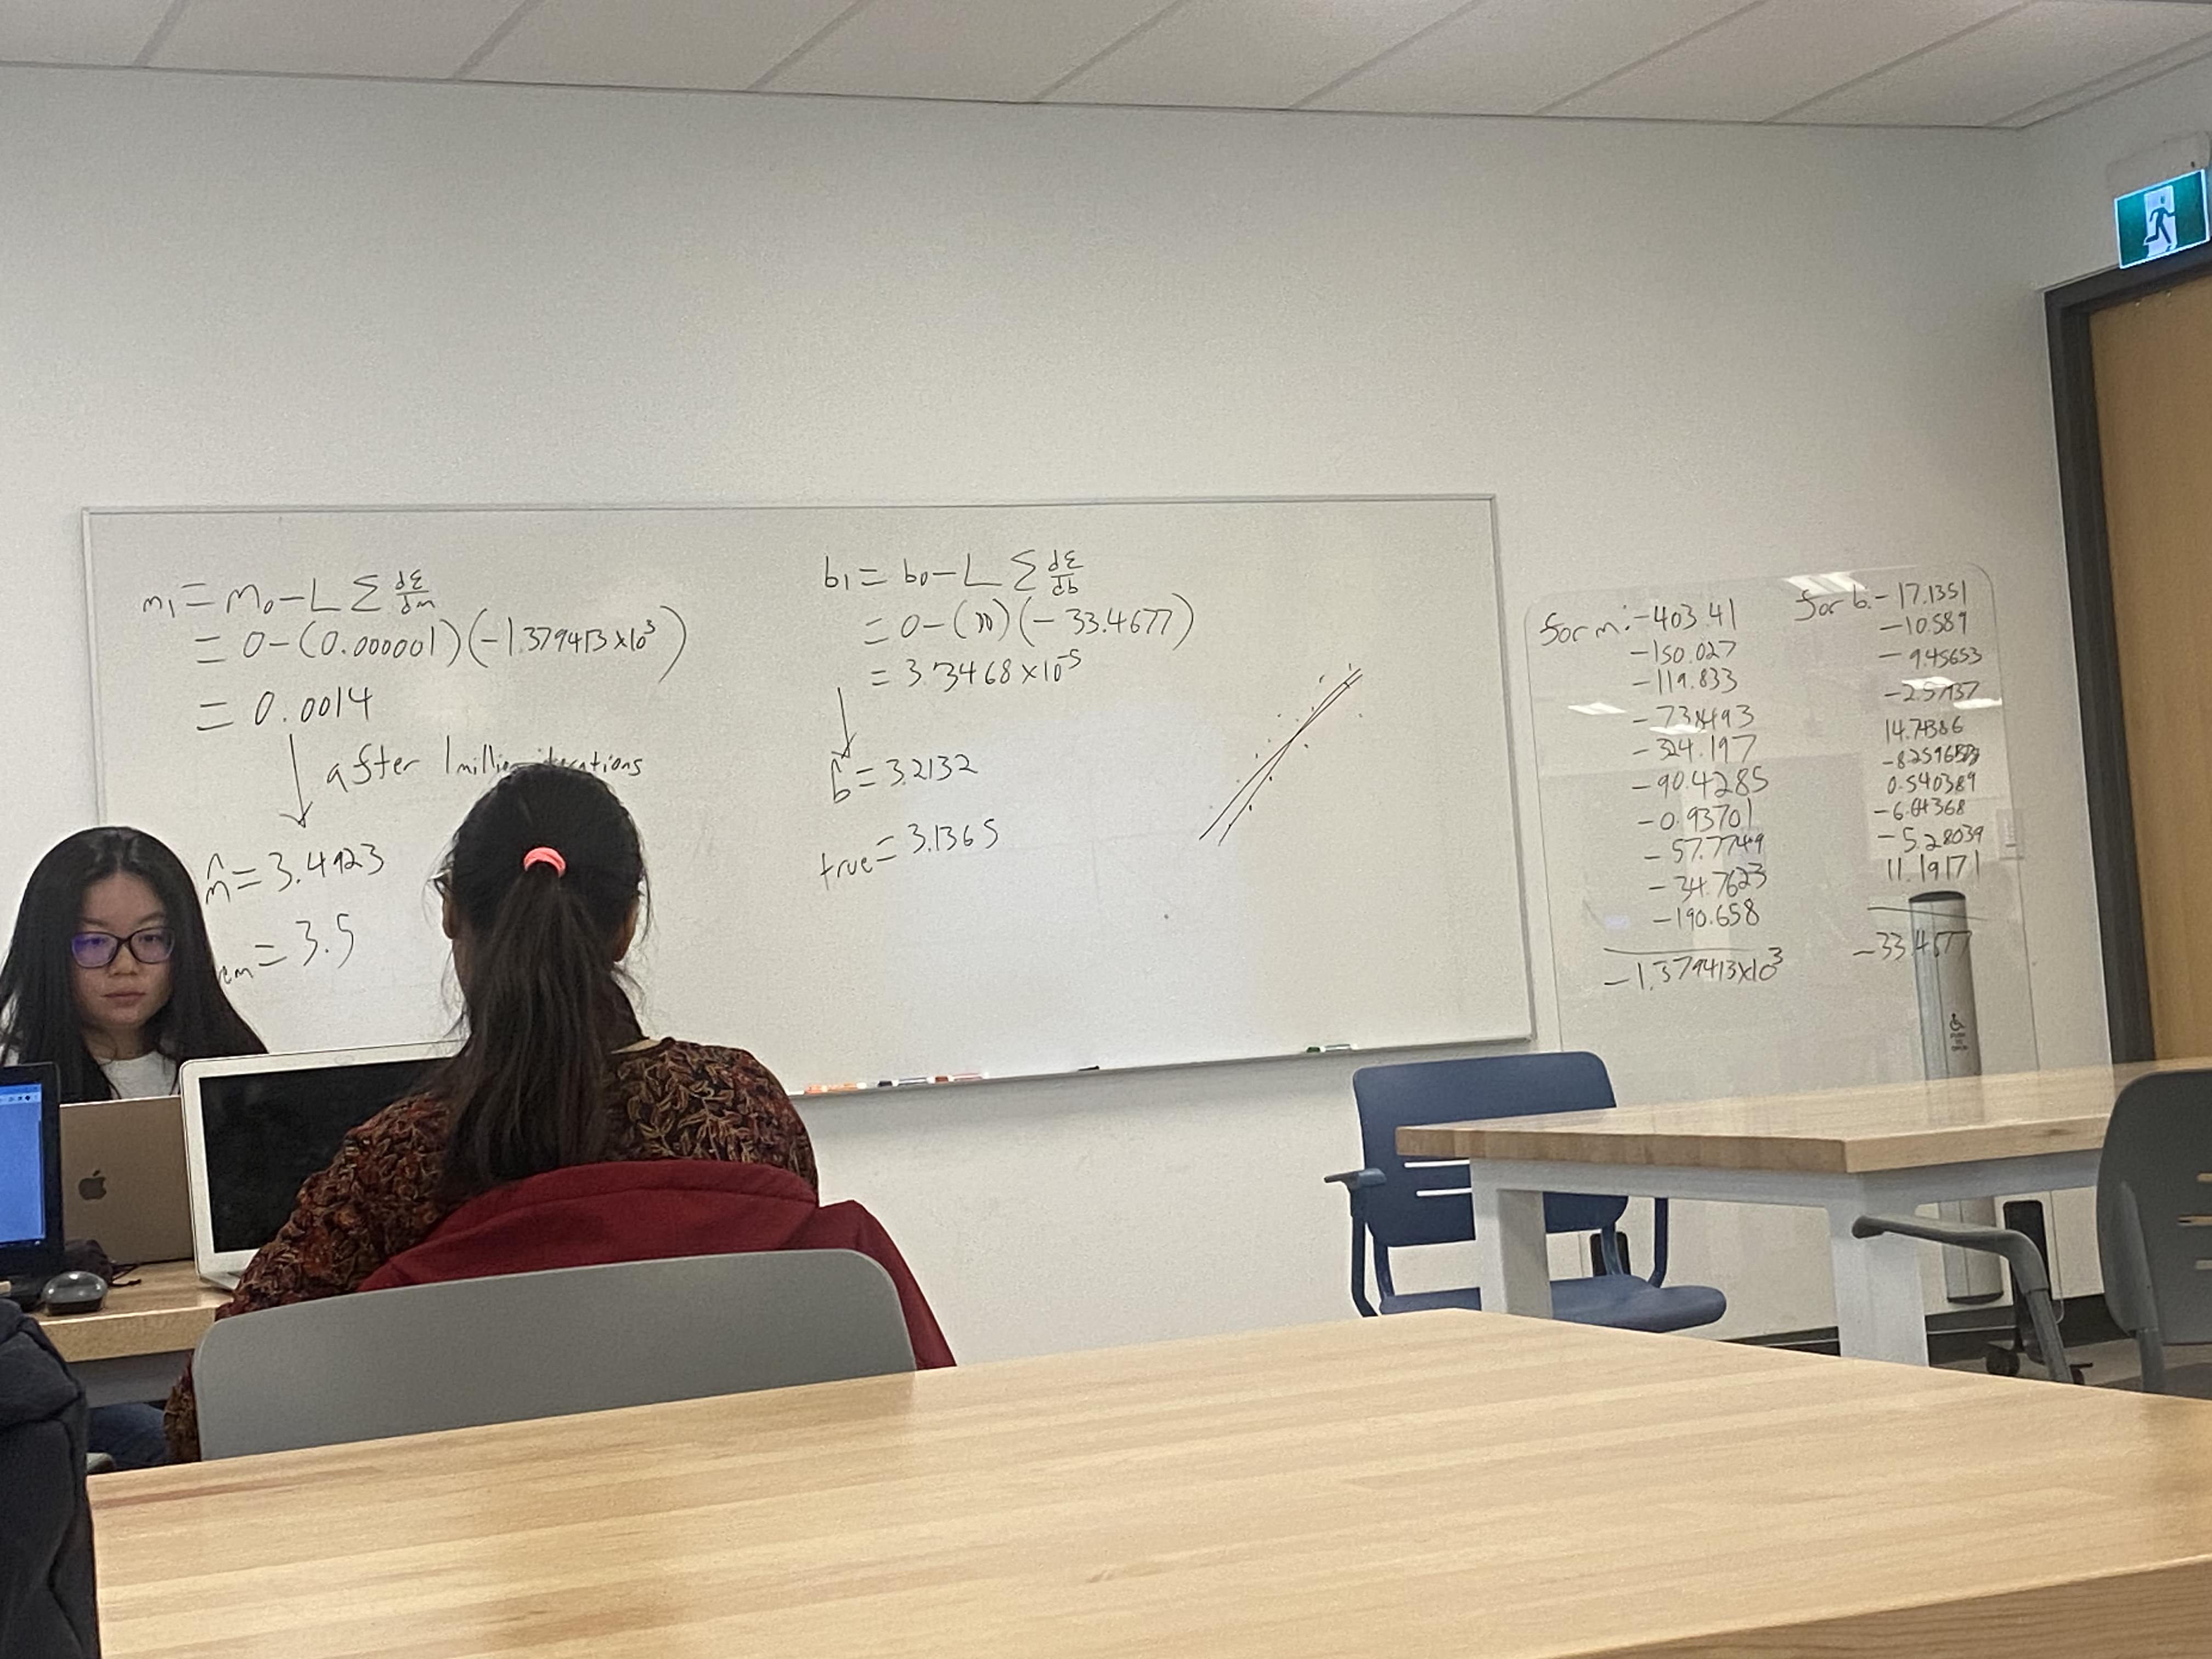 m₁ = m₀ - L Σ dε/dm
= 0 - (0.000001)(-1.379413×10³)
= 0.0014
after 1 million iterations
m̂ = 3.4923
= 3.5
b₁ = b₀ - L Σ dε/db
= 0 - (")(-33.4677)
= 3.3468×10⁻⁵
b̂ = 3.2132
true = 3.1365
for m: -403.41
-150.027
-119.833
-324.197
-90.4285
-0.93701
-57.7749
-34.7623
-190.658
-1.379413×10³
for b: -17.1351
-10.589
-9.45653
14.74386
0.540389
-5.28039
11.19171
-33.4677